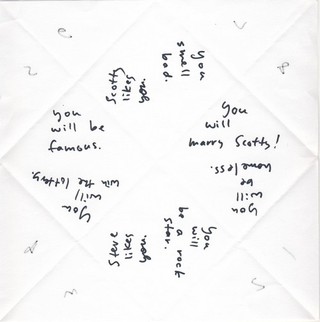 you
smell
bad.
Scotty
likes
you.
you
will be
famous.
You
will
marry Scotty!
you
will
be
homeless.
you
will
win the lottery.
Steve
likes
you.
you
will
be a rock
star.
8
5
2